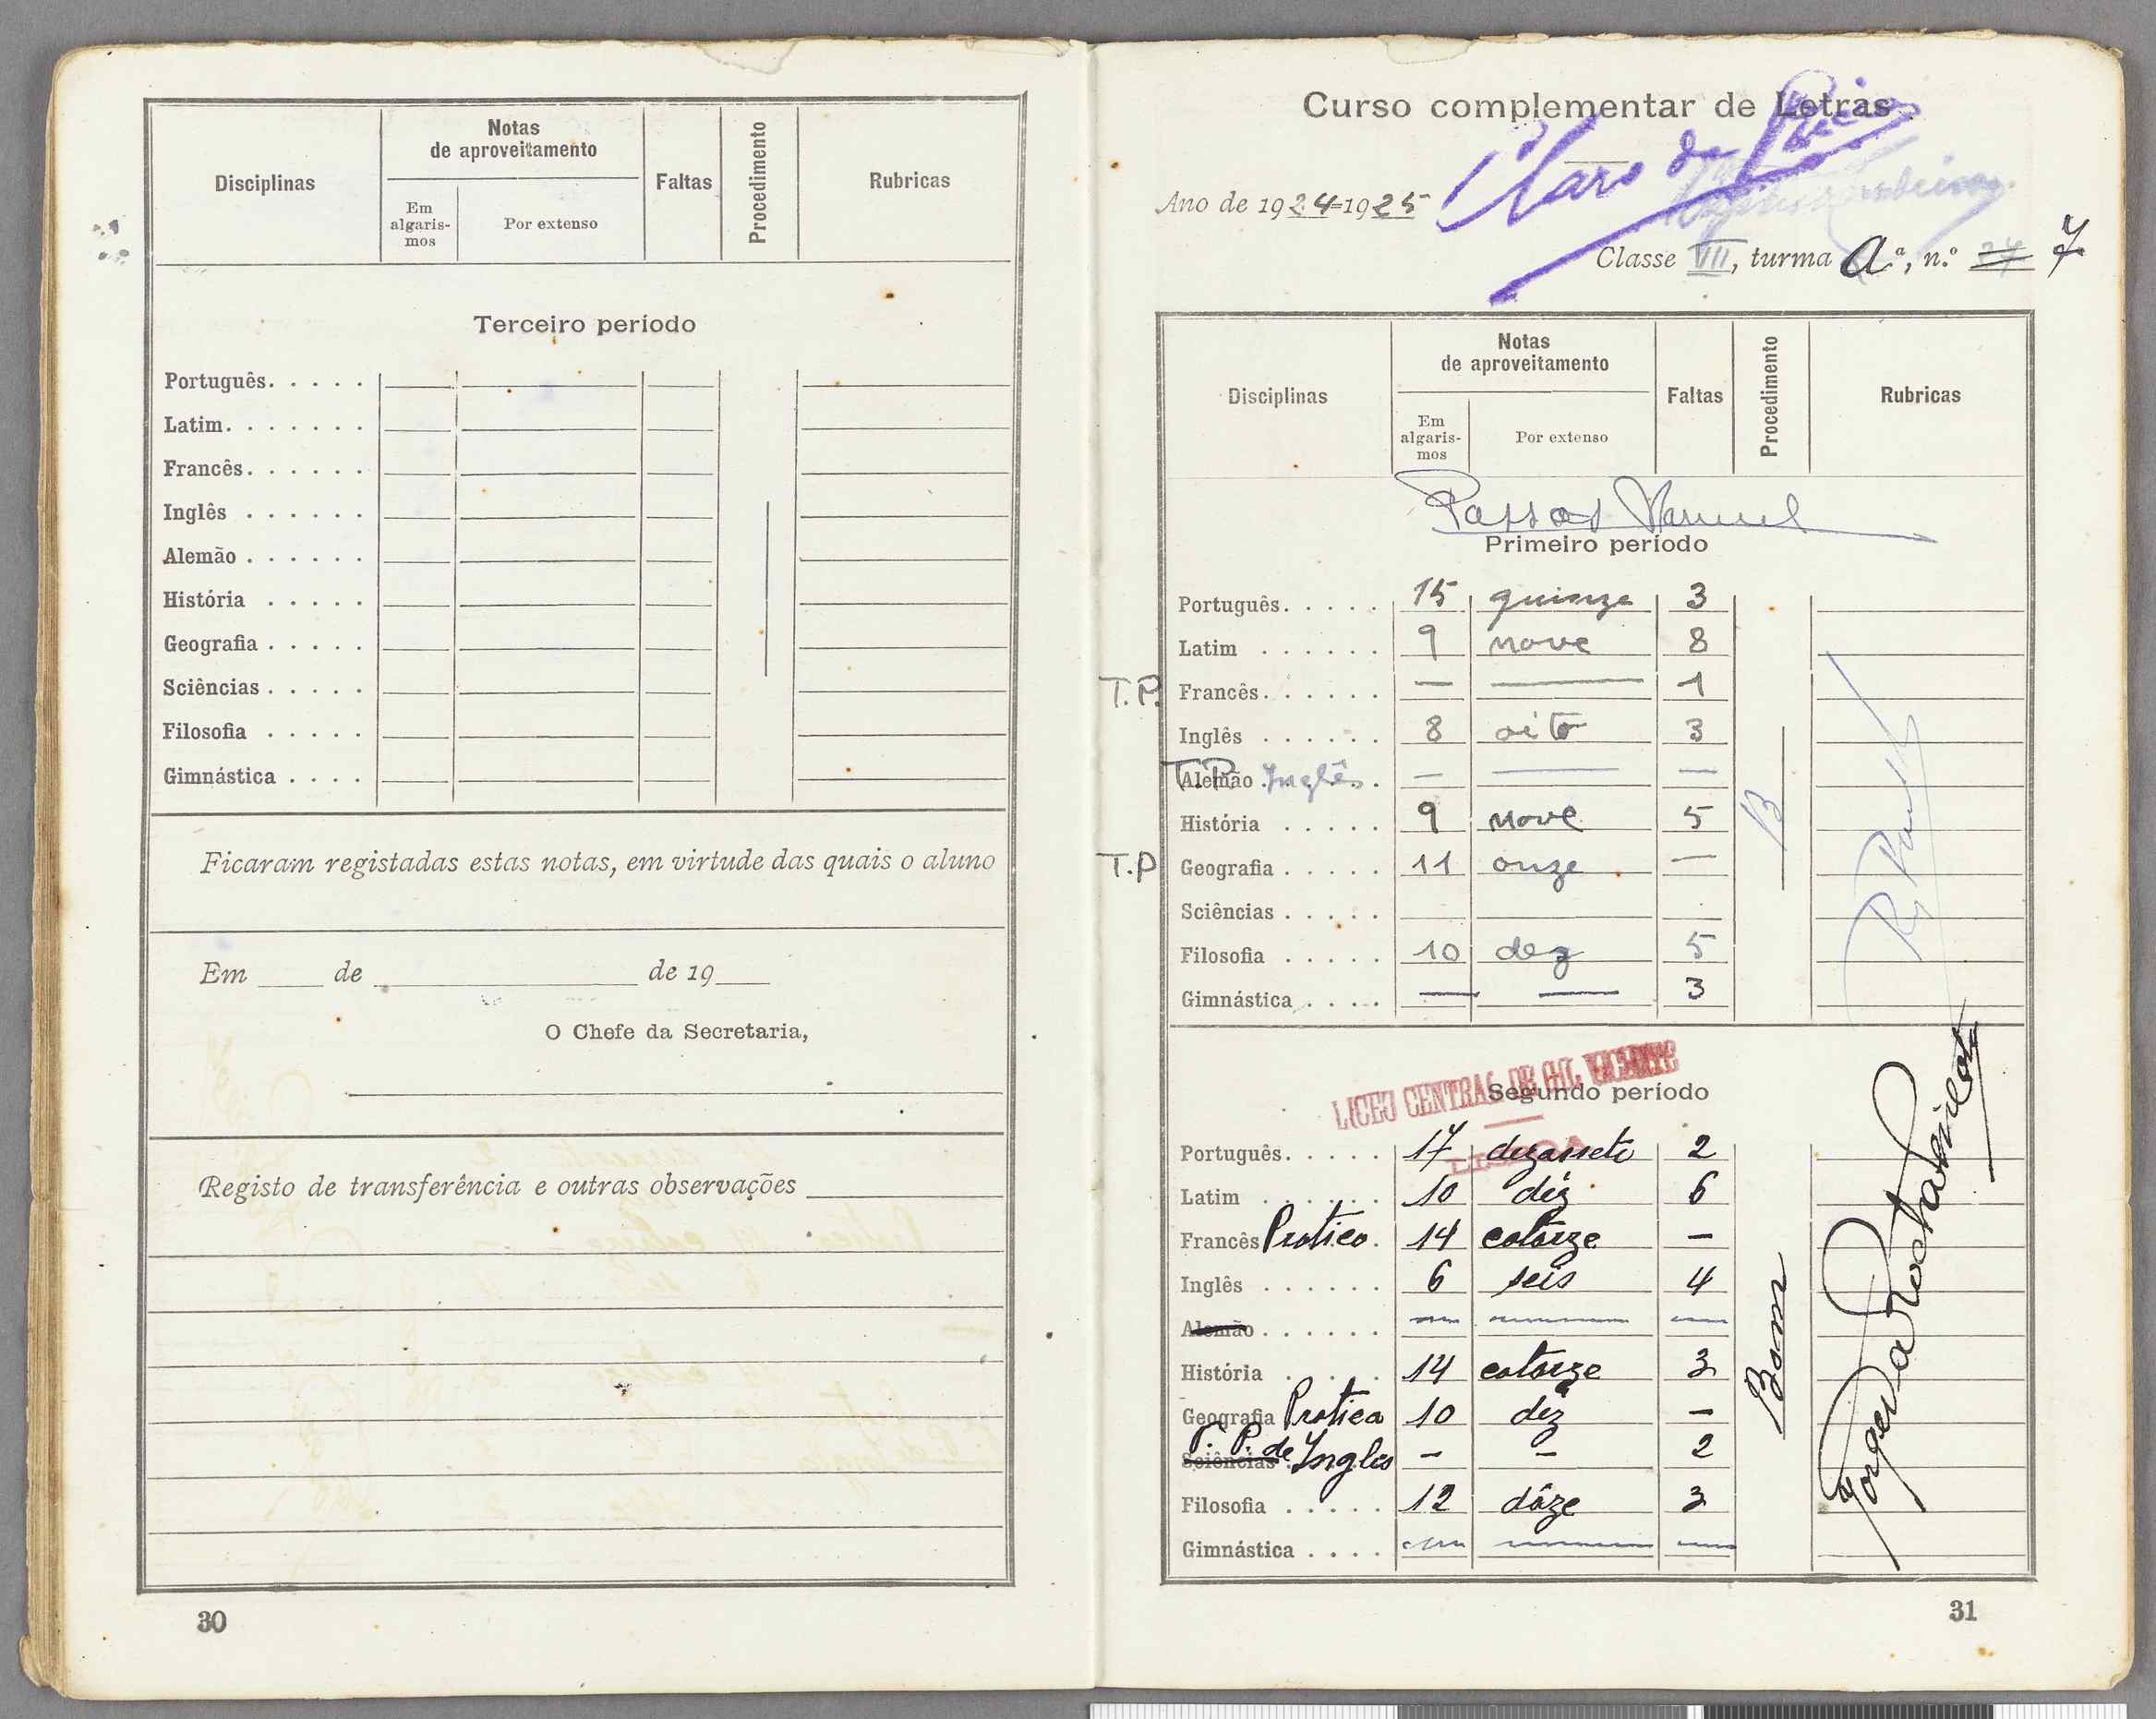 Disciplinas
Notas
de aproveitamento
Em
algaris-
mos
Por extenso
Faltas
Procedimento
Rubricas
Terceiro período
Português. . . . .
Latim. . . . . . .
Francês. . . . . .
Inglês . . . . . .
Alemão . . . . . .
História . . . . .
Geografia . . . . .
Sciências . . . . .
Filosofia . . . . .
Gimnástica . . . .
Ficaram registadas estas notas, em virtude das quais o aluno
Em ____ de ________________ de 19___
O Chefe da Secretaria,
Registo de transferência e outras observações
30
Curso complementar de Letras
Ano de 1924-1925
Classe VII, turma Aª, n.º 27 7
Disciplinas
Notas
de aproveitamento
Em
algaris-
mos
Por extenso
Faltas
Procedimento
Rubricas
Passos Manuel
Primeiro período
Português. . . . . 15 quinze 3
Latim . . . . . . 9 nove 8
T.P. Francês. . . . . . — — 1
Inglês . . . . . . 8 oito 3
T.P. Alemão Inglês. — — —
História . . . . . 9 nove 5
T.P Geografia . . . . . 11 onze —
Sciências . . . . .
Filosofia . . . . . 10 dez 5
Gimnástica . . . . — — 3
B
LICEU CENTRAL DE GIL VICENTE
LISBOA
Segundo período
Português. . . . . 17 dezassete 2
Latim . . . . . . 10 déz 6
Francês Pratico. 14 catorze —
Inglês . . . . . . 6 seis 4
Alemão . . . . . . — — —
História . . . . . 14 catorze 3
Geografia Pratica 10 déz —
Sciências T. P. de Ingles — — 2
Filosofia . . . . . 12 dôze 3
Gimnástica . . . . — — —
Bom
31